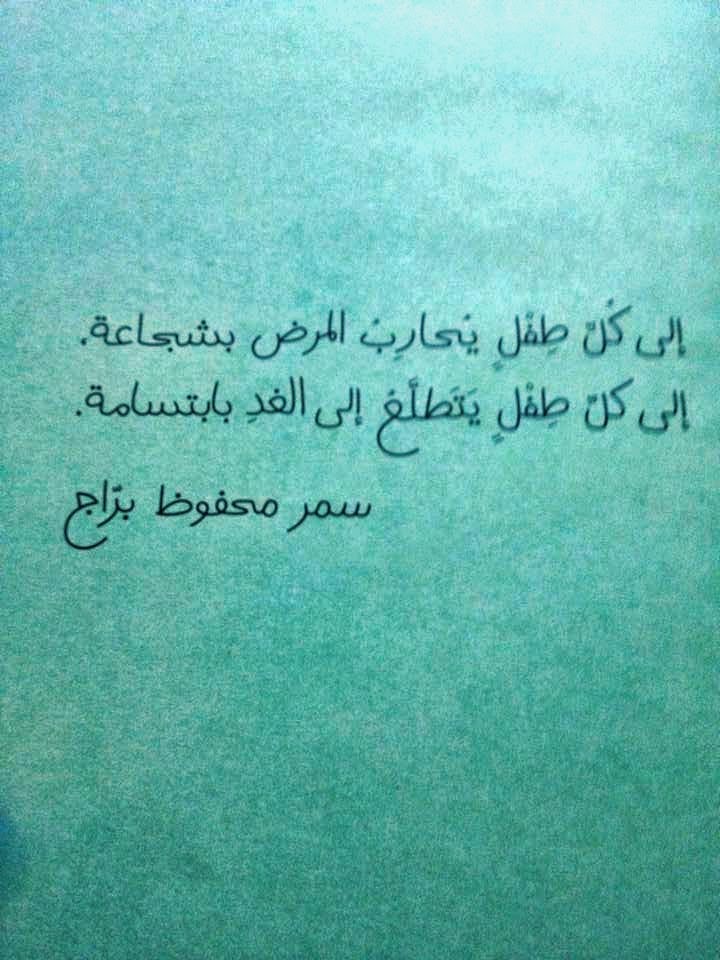 إلى كُلّ طِفْلٍ يُحارِبُ المرض بشجاعة.
إلى كلّ طِفْلٍ يَتَطلَّعُ إلى الغدِ بابتسامة.
سمر محفوظ برّاج